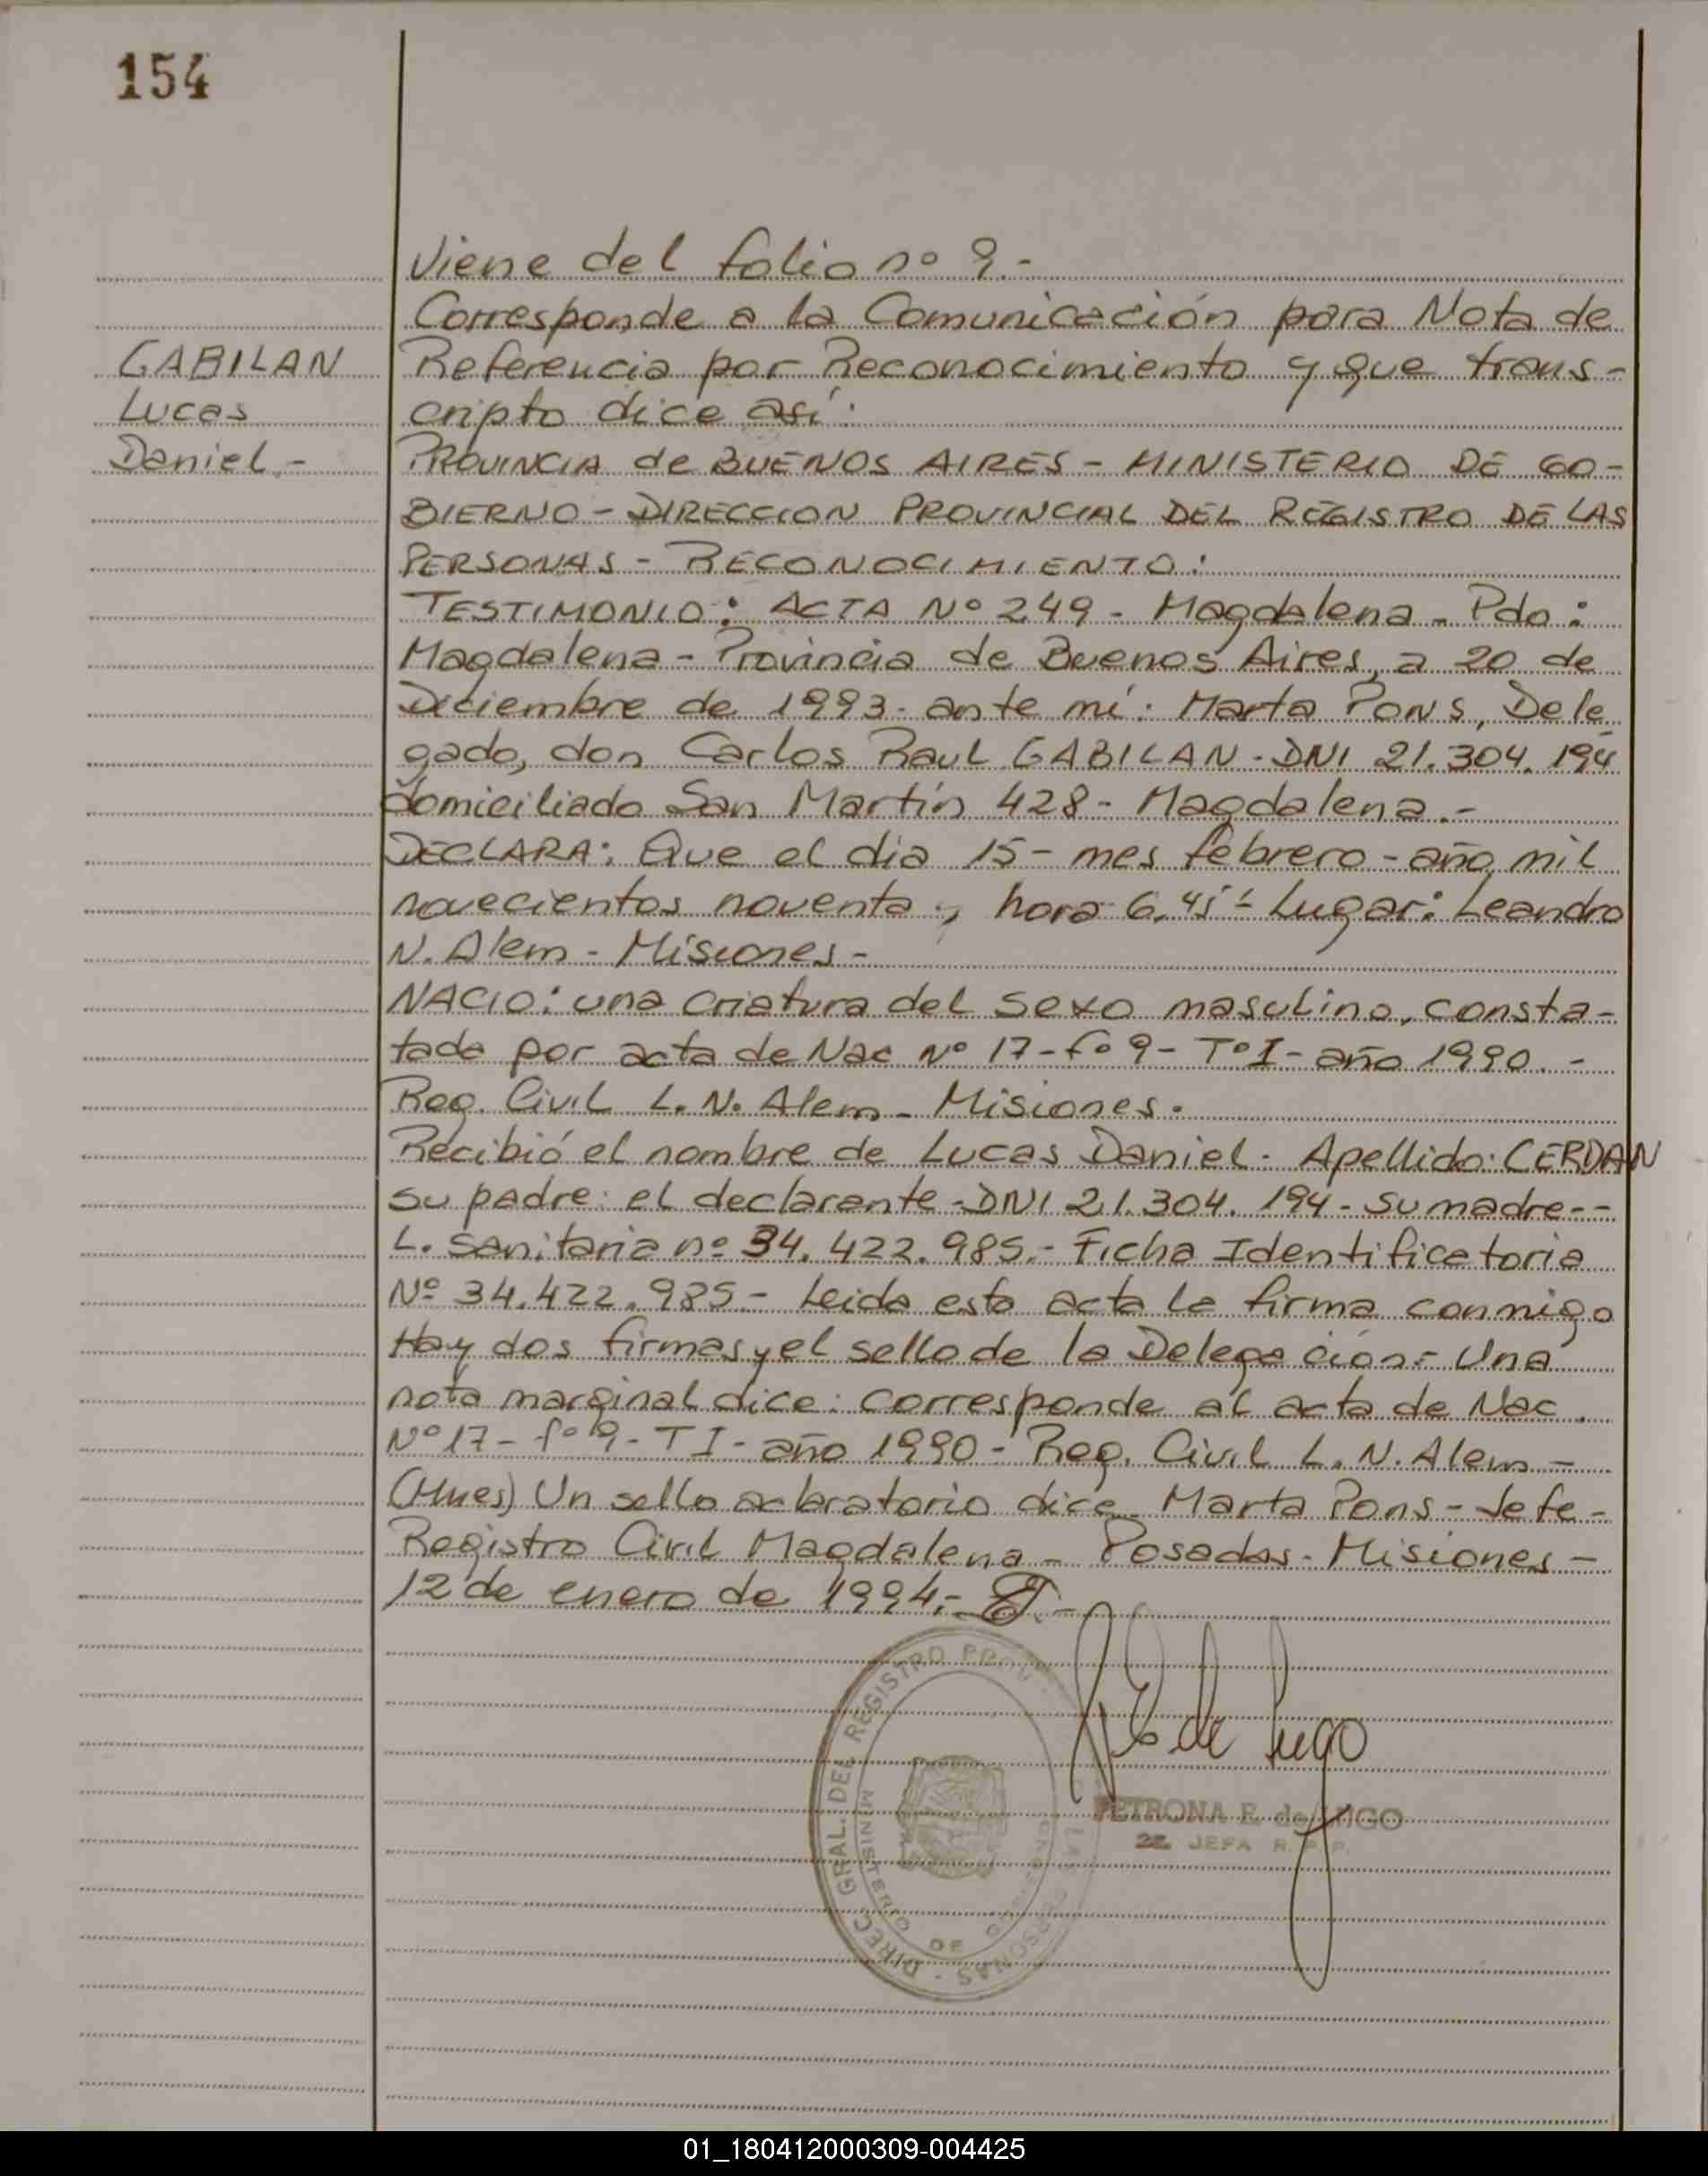 154
GABILAN
Lucas
Daniel.-
Viene del folio nº 9.-
Corresponde a la Comunicación para Nota de
Referencia por Reconocimiento y que trans-
cripto dice así:
PROVINCIA de BUENOS AIRES - MINISTERIO DE GO-
BIERNO - DIRECCION PROVINCIAL DEL REGISTRO DE LAS
PERSONAS - RECONOCIMIENTO:
TESTIMONIO: ACTA Nº 249 - Magdalena - Pdo:
Magdalena - Provincia de Buenos Aires, a 20 de
Diciembre de 1993. ante mí: Marta PONS, Dele-
gado, don Carlos Raul GABILAN - DNI 21.304.194
domiciliado San Martín 428 - Magdalena.-
DECLARA: Que el dia 15 - mes febrero - año mil
novecientos noventa, hora 6,45 - Lugar: Leandro
N. Alem - Misiones -
NACIO: una criatura del sexo masulino, consta-
tada por acta de Nac Nº 17 - fº 9 - Tº I - año 1990.-
Reg. Civil L. N. Alem - Misiones.
Recibió el nombre de Lucas Daniel. Apellido: CERDAN
su padre: el declarante - DNI 21.304.194 - su madre --
L. Sanitaria nº 34.422.985.- Ficha Identificatoria
Nº 34.422.985 - Leida esta acta la firma conmigo
Hay dos firmas y el sello de la Delegación - Una
nota marginal dice: Corresponde al acta de Nac.
Nº 17 - fº 9 - T I - año 1990 - Reg. Civil L. N. Alem -
(Mnes) Un sello aclaratorio dice Marta Pons - Jefe -
Registro Civil Magdalena - Posadas - Misiones -
12 de enero de 1994.-
DIRECC. GRAL. DEL REGISTRO PROV. DE LAS PERSONAS -
MINISTERIO DE GOBIERNO
de Lugo
PETRONA E. de LUGO
JEFA R. P. P.
01_180412000309-004425